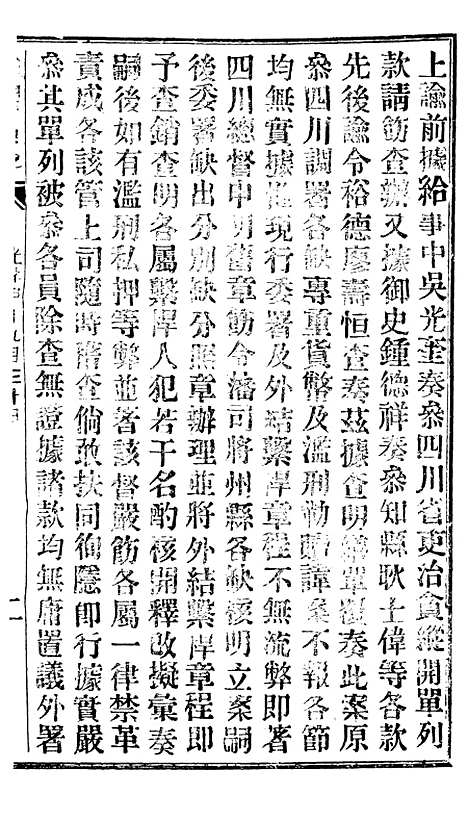 上諭前據給事中吳光奎奏叅四川省吏治貪縱開單列
款請飭查辦又據御史鍾德祥奏叅知縣耿士偉等各款
先後諭令裕德廖壽恒查奏茲據查明繕單覆奏此案原
叅四川調署各缺專重貨幣及濫刑勒贖諱案不報各節
均無實據惟現行委署及外結繫桿章程不無流弊即著
四川總督申明舊章飭令藩司將州縣各缺核明立案嗣
後委署缺出分別缺分照章辦理並將外結繫桿章程即
予查銷查明各屬繫桿人犯若干名酌核開釋改擬彙奏
嗣後如有濫刑私押等弊並著該督嚴飭各屬一律禁革
責成各該管上司隨時稽查倘敢扶同徇隱即行據實嚴
叅其單列被叅各員除查無證據諸款均無庸置議外署